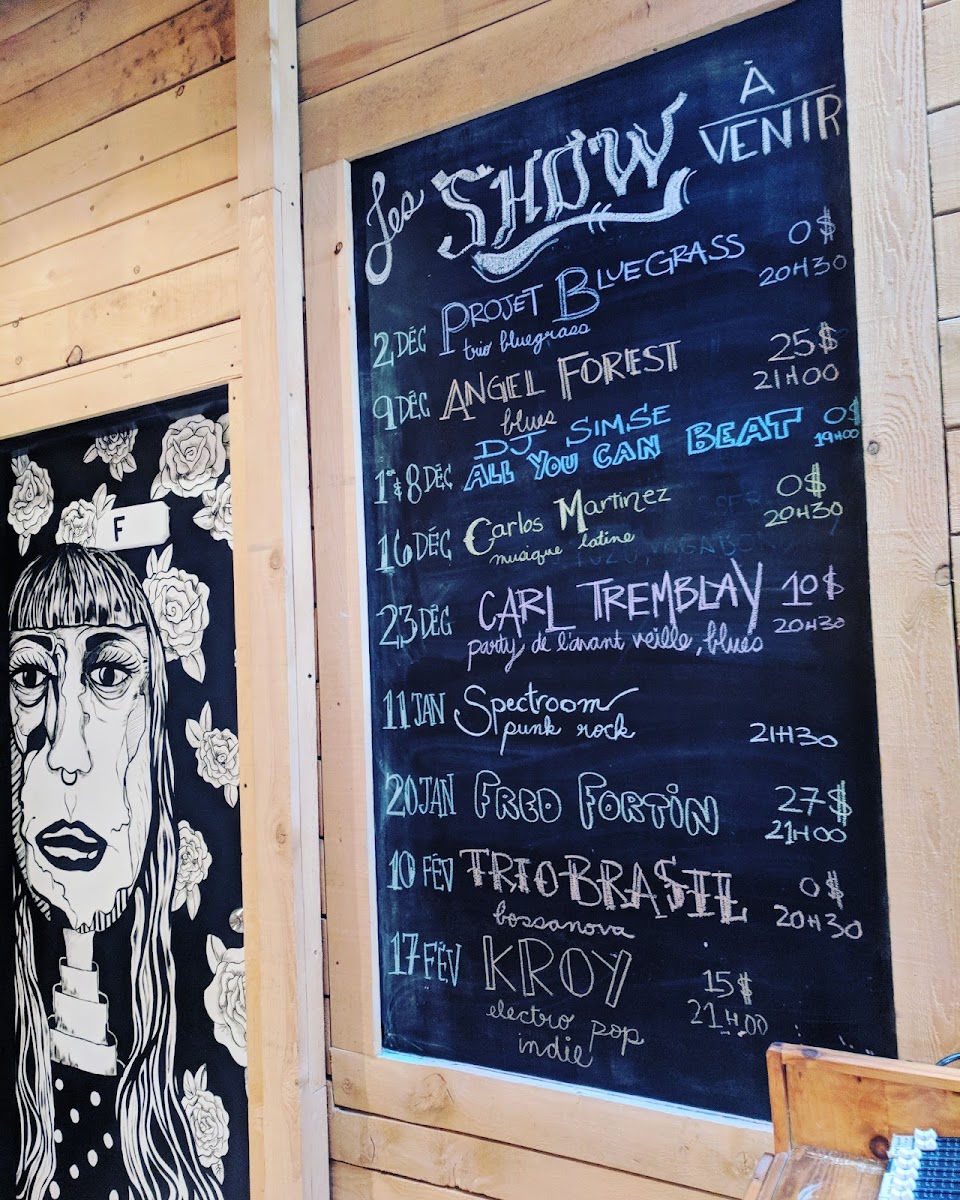 Les SHOW À VENIR
2 DÉC PROJET BLUEGRASS 0$
trio bluegrass 20H30
9 DÉC ANGEL FOREST 25$
blues 21H00
DJ SIMSE 0$
1er & 8 DÉC ALL YOU CAN BEAT 19H00
16 DÉC Carlos Martinez 0$
musique latine 20H30
23 DÉC CARL TREMBLAY 10$
party de l'avant veille, blues 20H30
11 JAN Spectroom
punk rock 21H30
20 JAN FRED FORTIN 27$
21H00
10 FÉV TRIO BRASIL 0$
bossanova 20H30
17 FÉV KROY 15$
electro pop 21H00
indie
F